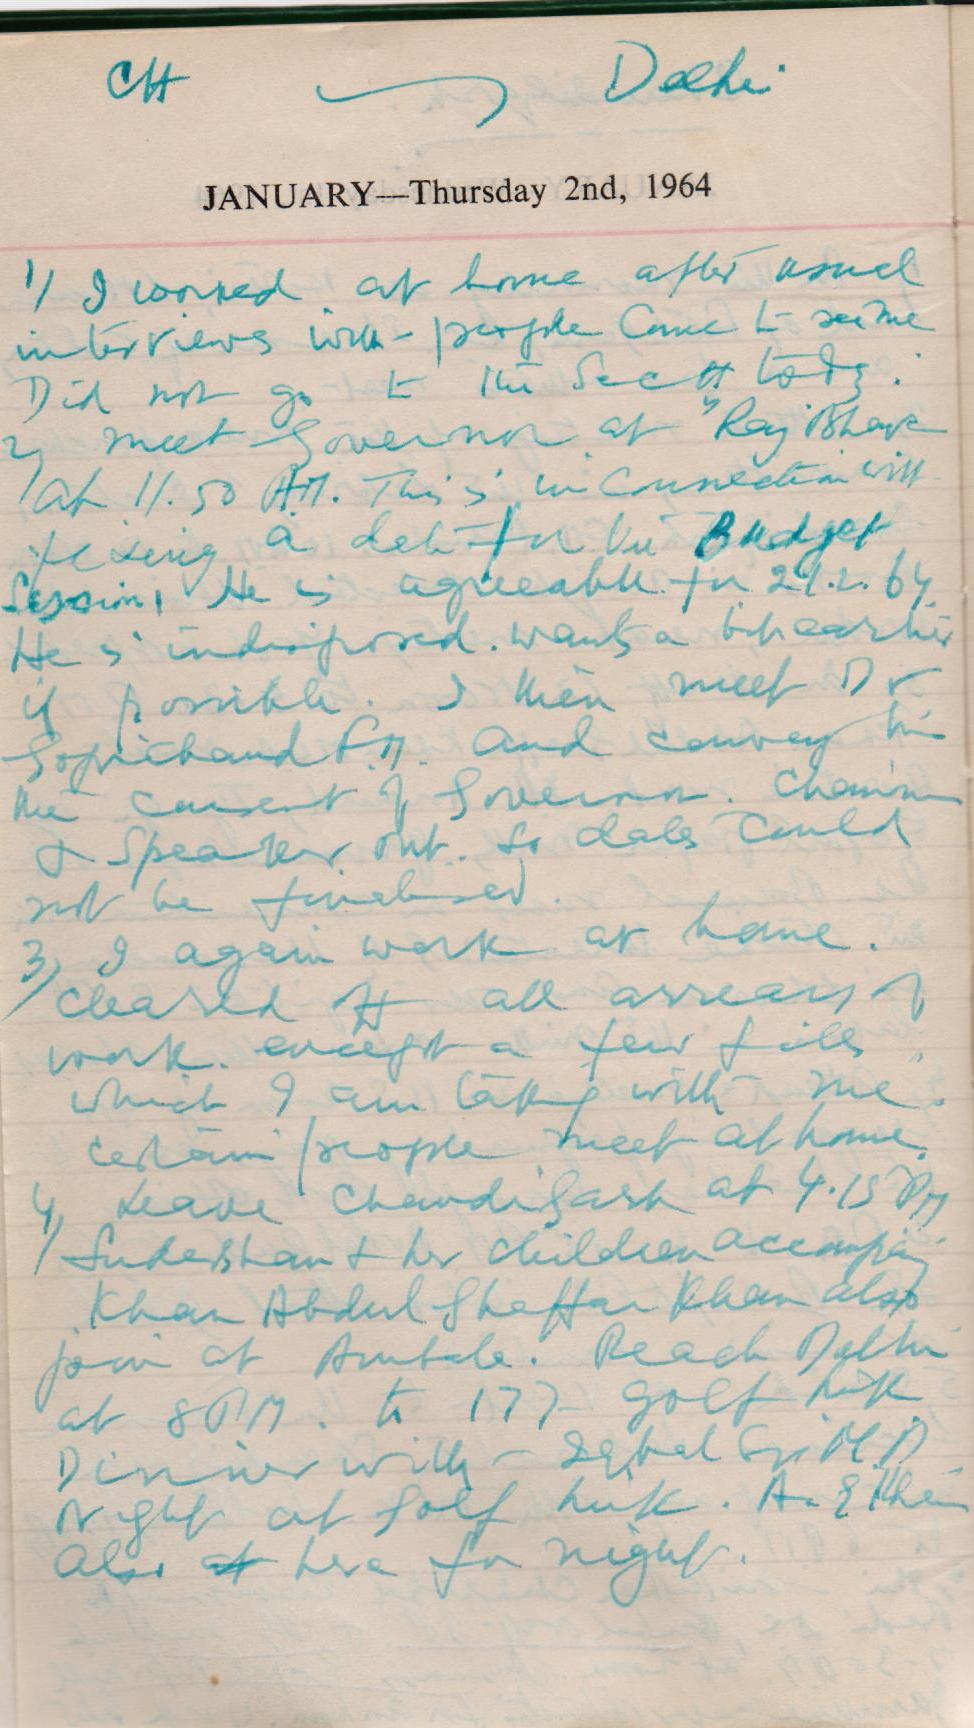 CH Delhi
JANUARY—Thursday 2nd, 1964
1) I worked at home after usual
interviews with people came to see me
Did not go to the Sectt today.
2) meet Governor at "Raj Bhavan
at 11.50 A.M. This is in connection with
fixing a date for the Budget
Session. He is agreeable for 24.2.64.
He is indisposed. wants a bit earlier
if possible. I then meet Dr
Gopichand P.M. and convey him
the consent of Governor. Chairman
& Speaker out. So dates could
not be finalised.
3) I again work at home.
Cleared off all arrears of
work. except a few files
which I am taking with me.
certain people meet at home.
4) Leave Chandigarh at 4.15 PM
Sudershan & her children accompany
Khan Abdul Ghaffar Khan also
join at Ambala. Reach Delhi
at 8 P.M. to 177 Golf link
Dinner with Iqbal
Night at Golf link.
also here for night.